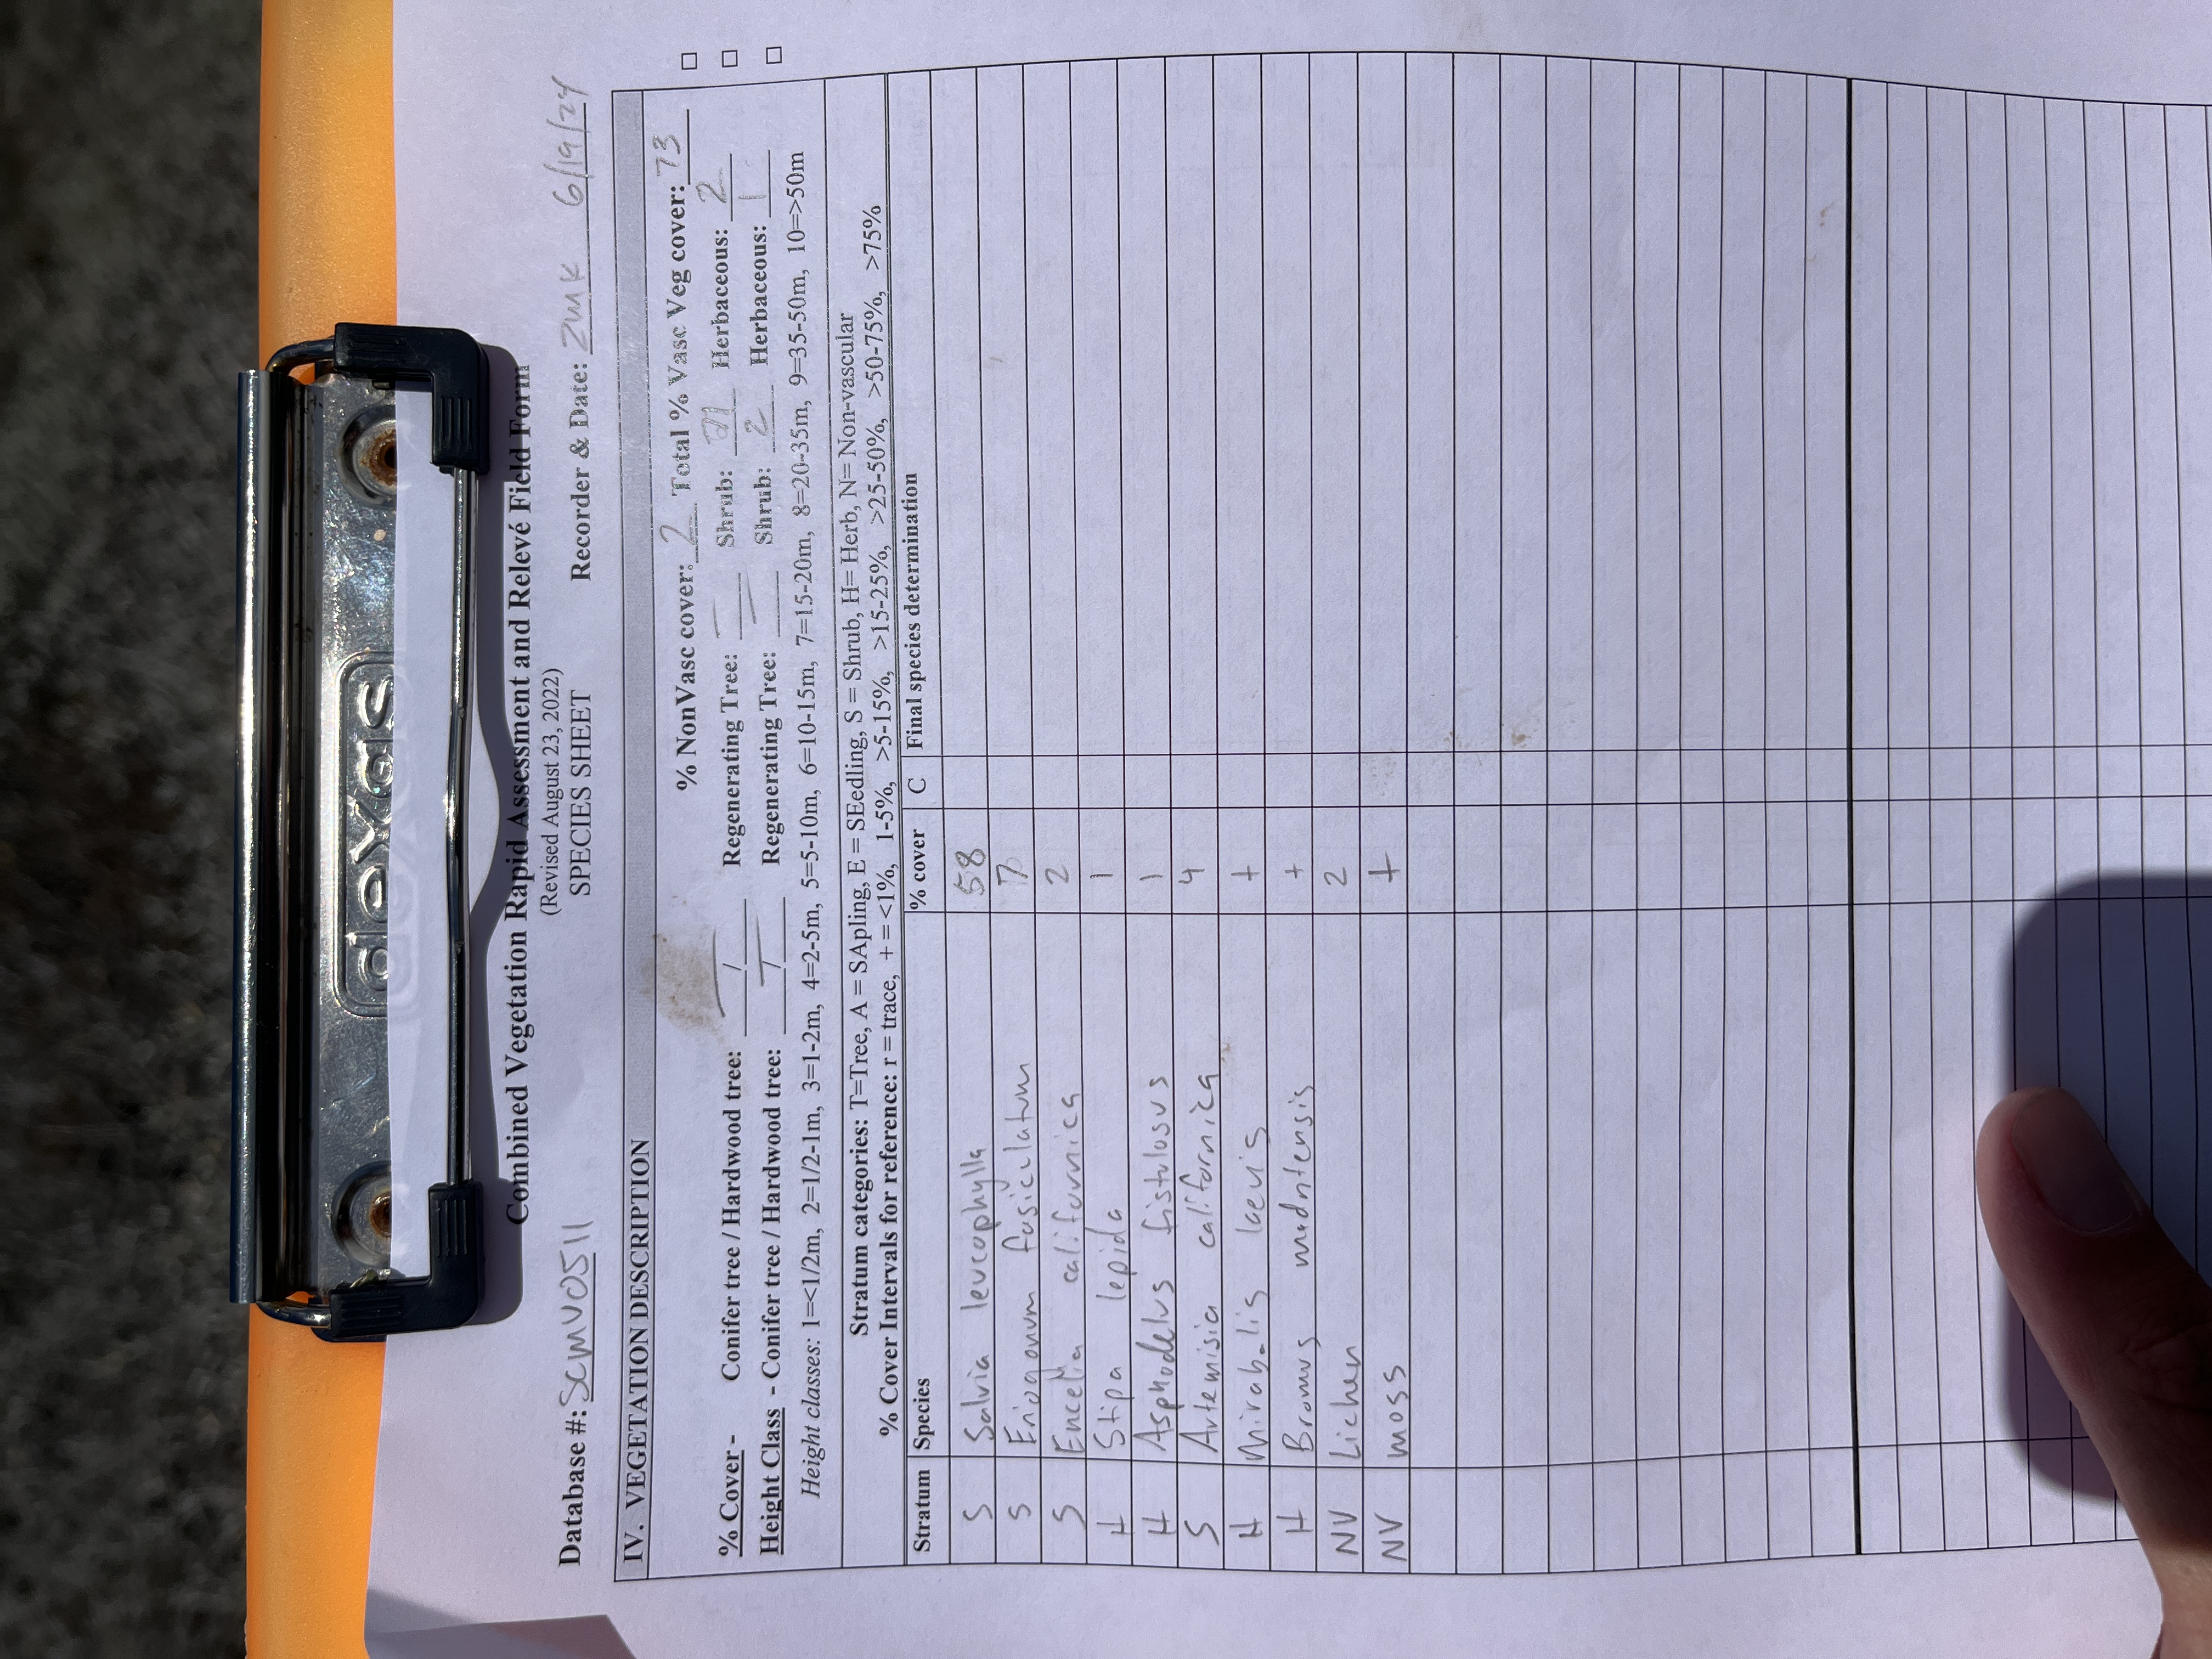 dexas
Combined Vegetation Rapid Assessment and Relevé Field Form
(Revised August 23, 2022)
SPECIES SHEET
Database #: SCMV0511 Recorder & Date: ZMK 6/19/24
IV. VEGETATION DESCRIPTION
% NonVasc cover: 2 Total % Vasc Veg cover: 73
% Cover - Conifer tree / Hardwood tree: — / — Regenerating Tree: — Shrub: 71 Herbaceous: 2
Height Class - Conifer tree / Hardwood tree: — / — Regenerating Tree: — Shrub: 2 Herbaceous: 1
Height classes: 1=<1/2m, 2=1/2-1m, 3=1-2m, 4=2-5m, 5=5-10m, 6=10-15m, 7=15-20m, 8=20-35m, 9=35-50m, 10=>50m
Stratum categories: T=Tree, A = SApling, E = SEedling, S = Shrub, H= Herb, N= Non-vascular
% Cover Intervals for reference: r = trace, + = <1%, 1-5%, >5-15%, >15-25%, >25-50%, >50-75%, >75%
Stratum Species % cover C Final species determination
S Salvia leucophylla 58
S Eriogonum fasiculatum 7
S Encelia californica 2
H Stipa lepida 1
H Asphodelus fistulosus 1
S Artemisia californica 4
H Mirabalis laevis +
H Bromus madritensis +
NV Lichen 2
NV moss +